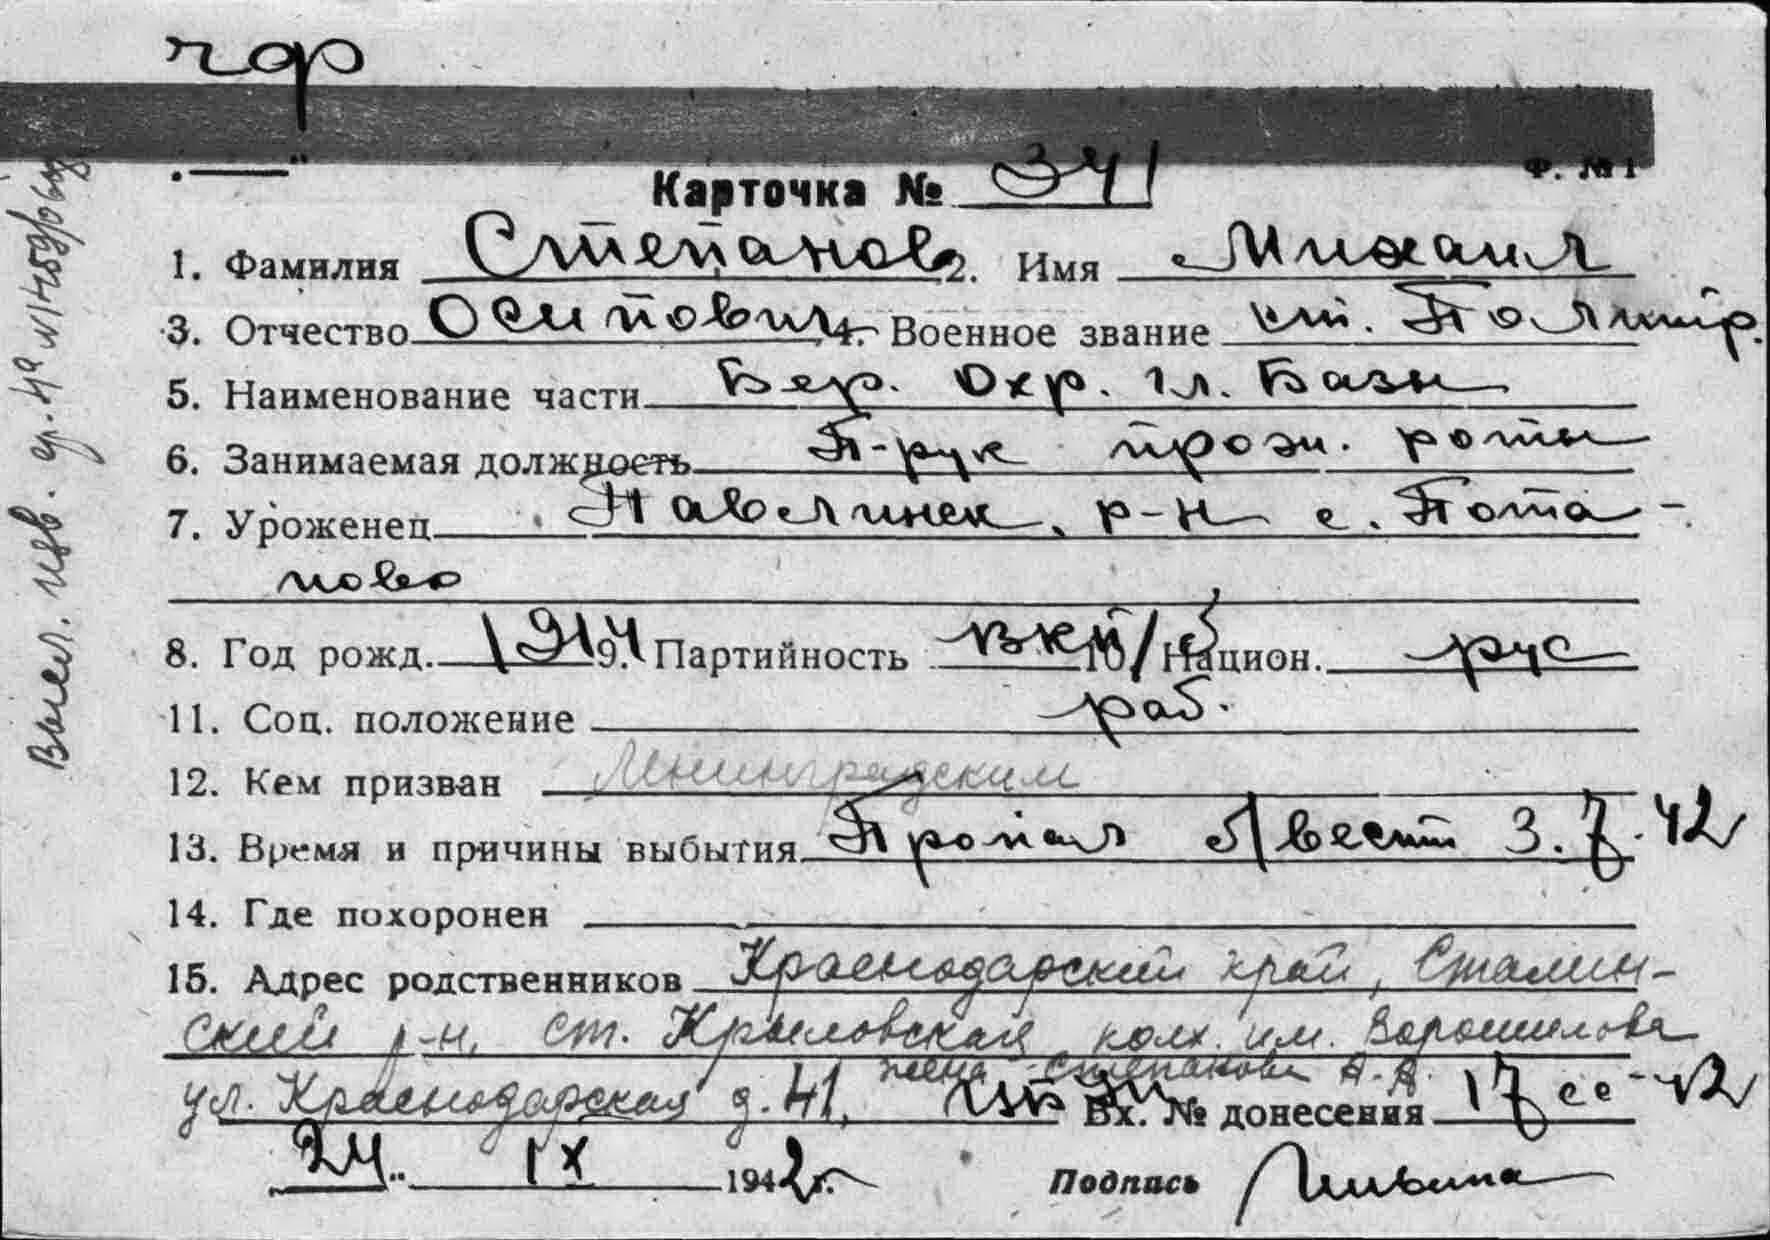 чф
Ф. № 1
Карточка № 341
1. Фамилия Степанов 2. Имя Михаил
3. Отчество Осипович 4. Военное звание ст. Политр.
5. Наименование части Бер. Охр. Гл. Базы
6. Занимаемая должность П-рук прож. роты
7. Уроженец Павлинск. р-н с. Пота-
пово
8. Год рожд. 1914 9. Партийность ВКП/б 10. Национ. рус
11. Соц. положение раб.
12. Кем призван Ленинградским
13. Время и причины выбытия Пропал б/вести 3.7.42
14. Где похоронен
15. Адрес родственников Краснодарский край, Сталин-
ский р-н, ст. Крыловская колх. им. Ворошилова
жена Степанова А.А.
ул. Краснодарская д. 41, Вх. № донесения 17сс-42
24 IX 1942 г. Подпись
Высл. изв.